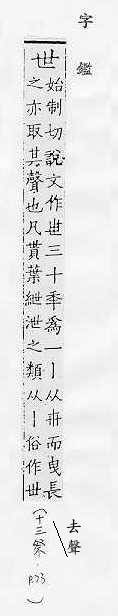 字鑑
去聲
世
始制切說文作世三十秊爲一丨从卅而曳長
之亦取其聲也凡貰葉紲泄之類从丨俗作丗
(十三祭·P.73)